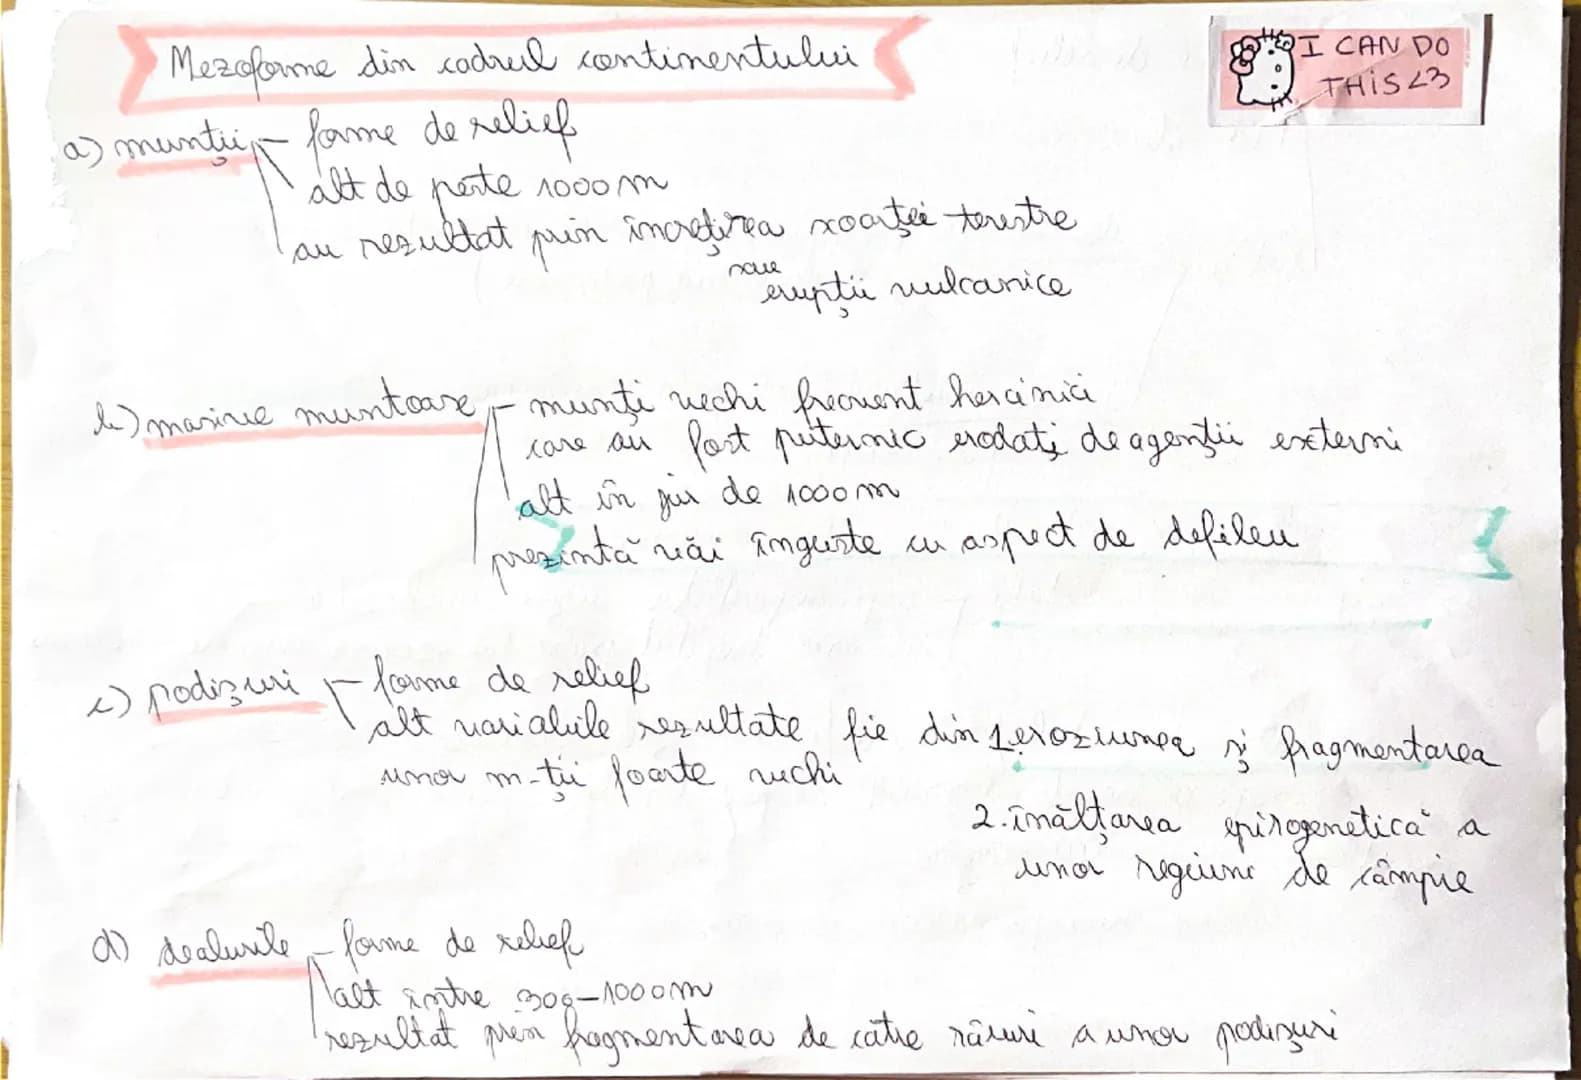 Mezoforme din cadrul continentului
I CAN DO
THiS <3
a) munții - forme de relief
alt de peste 1000 m
au rezultat prin încrețirea scoarței terestre
sau
erupții vulcanice
b) masive muntoase - munți vechi frecvent hercinici
care au fost puternic erodați de agenții externi
alt în jur de 1000 m
prezintă văi înguste cu aspect de defileu
c) podișuri - forme de relief
alt variabile rezultate fie din 1. eroziunea și fragmentarea
unor m-ții foarte vechi
2. înălțarea epirogenetică a
unor regiuni de câmpie
d) dealurile - forme de relief
alt între 300-1000 m
rezultat prin fragmentarea de către râuri a unor podișuri